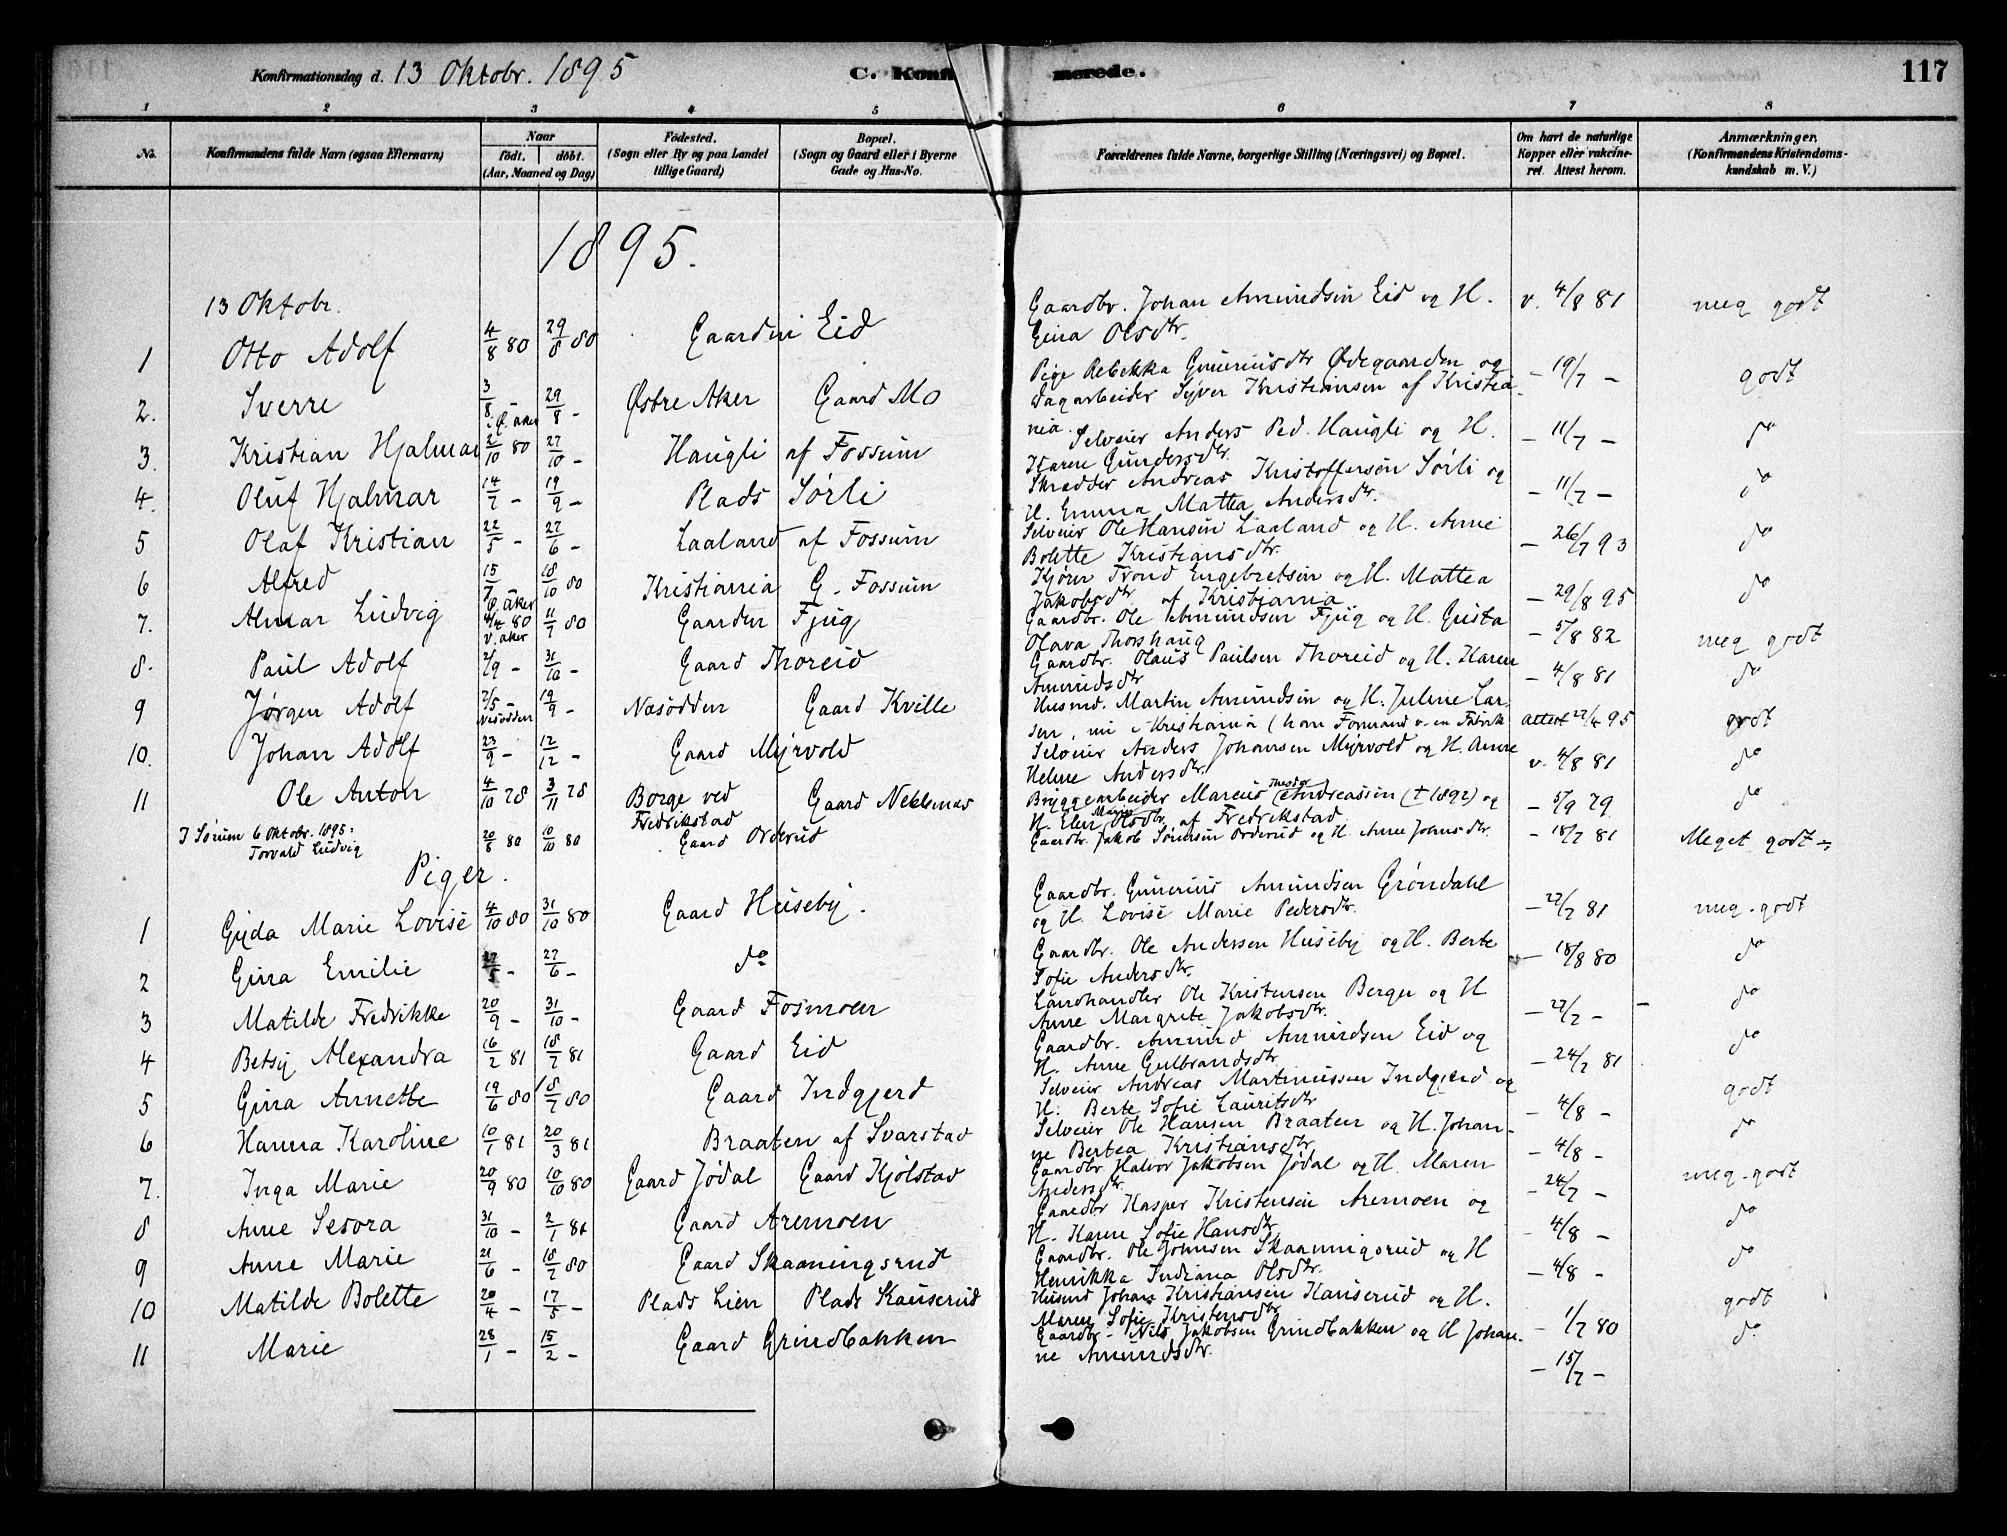 Konfirmationsdag d. 13 Oktobr. 1895 C. Konfirmerede. 117
1 2 3 4 5 6 7 8
No. Konfirmandens fulde Navn (ogsaa Efternavn) Naar födt. döbt. (Aar, Maaned og Dag) Födested. (Sogn eller By og paa Landet tillige Gaard) Bopæl. (Sogn og Gaard eller i Byerne Gade og Hus-No. Forældrenes fulde Navne, borgerlige Stilling (Næringsvei) og Bopæl. Om havt de naturlige Kopper eller vakcineret. Attest herom. Anmærkninger. (Konfirmandens Kristendomskundskab m. V.)
1895.
13 Oktobr.
1 Otto Adolf 4/8 80 29/8 80 Gaarden Eid Gaardbr. Johan Amundsen Eid og H. Gina Olsdtr. v. 4/8 81 meg godt
2. Sverre 3/8 - i Ø. Aker 29/8 - Østre Aker Gaard Mo Pige Rebekka Guneriusdtr Ødegaarden og Dagarbeider Syver Kristiansen af Kristiania. - 19/7 - godt
3. Kristian Hjalmar 2/10 80 27/10 - Haugli af Fossum Selveier Anders Ped. Haugli og H. Karen Gundersdtr. - 11/7 - do
4. Oluf Hjalmar 14/7 - 19/9 - Plads Sørli Skrædder Andreas Kristoffersen Sørli og H. Emma Mattea Andersdtr. - 11/7 - do
5 Olaf Kristian 22/5 - 27/6 - Laaland af Fossum Selveier Ole Hansen Laaland og H. Anne Bolette Kristiansdtr. - 26/7 93 do
6 Alfred 15/7 Ø. Aker 18/10 80 Kristiania G. Fossum Kjører Trond Engebretsen og H. Mattea Jakobsdtr af Kristiania - 29/8 95 do
7. Almar Ludvig 4/4 80 V. Aker 11/7 80 Gaarden Fjug Gaardbr. Ole Amundsen Fjug og H. Gusta Olava Thorshaug - 5/8 82 meg godt
8. Paul Adolf 2/9 - 31/10 - Gaard Thoreid Gaardbr. Olaus Paulsen Thoreid og H. Karen Amundsdtr - 4/8 81 do
9 Jørgen Adolf 2/5 - Næsodden 19/9 - Næsodden Gaard Kville Husmd. Martin Amundsen og H. Juline Larsen, nu i Kristiania (han Formand v. en Fabrik Attest 27/4 95 godt
10. Johan Adolf 23/9 - 12/12 - Gaard Myrvold Selveier Anders Johansen Myrvold og H. Anne Helene Andersdtr. v. 4/8 81 do
11 Ole Anton 4/10 78 3/11 78 Borge ved Fredrikstad Gaard Neklemas Bryggearbeider Marcus Theodor Andreassen († 1892) og H. Elen Marie Olsdtr. af Fredrikstad - 5/9 79 do
I Sørum 6 Oktobr. 1895:
Torvald Ludvig 20/8 80 10/10 80 Gaard Orderud Gaardbr. Jakob Sørensen Orderud og H Anne Johnsdtr. - 18/7 81 Meget godt
Piger.
1 Gyda Marie Lovise 4/10 80 31/10 80 Gaard Huseby. Gaardbr. Gunerius Amundsen Grøndahl og H. Lovise Marie Pedersdtr. - 22/7 81 meg. godt
2 Gina Emilie 27/5 - 27/6 - do Gaardbr. Ole Andersen Huseby og H. Berte Sofie Andersdtr. - 18/8 80 do
3 Matilde Fredrikke 20/9 - 31/10 - Gaard Fosmoen Landhandler Ole Kristensen Berger og H Anne Margrete Jakobsdtr. - 22/7 - do
4 Betsy Alexandra 16/2 81 18/7 81 Gaard Eid Gaardbr. Amund Amundsen Eid og H. Anne Gulbrandsdtr. - 24/7 81 do
5 Gina Annette 19/6 80 18/7 80 Gaard Indgjerd Selveier Andreas Martinussen Indgjerd og H. Berte Sofie Lauritsdtr - 4/8 - godt
6 Hanna Karoline 10/1 81 20/3 81 Braaten af Svarstad Selveier Ole Hansen Braaten og H. Johanne Bertea Kristiansdtr. - 4/8 - do
7. Inga Marie 20/9 80 10/10 80 Gaard Jødal Gaard Kjølstad Gaardbr Halvor Jakobsen Jødal og H. Maren Andersdtr. - 24/7 - meg. godt
8 Anne Sesora 31/10 - 2/1 81 Gaard Aremoen Gaardbr Kasper Kristensen Aremoen og H. Karen Sofie Hansdtr - 4/8 - do
9 Anne Marie 21/6 - 18/7 80 Gaard Skaaningsrud Gaardbr. Ole Johnsen Skaaningsrud og H Henrikka Indiana Olsdtr. - 4/8 - do
10 Matilde Bolette 20/4 - 17/5 - Plads Lien Plads Kauserud Husmd Johan Kristiansen Kauserud og H. Maren Sofie Kristensdtr - 1/7 80 godt
11 Marie 28/1 - 15/2 - Gaard Grindbakken Gaardbr. Nils Jakobsen Grindbakken og H Johanne Amundsdtr. - 15/7 - do